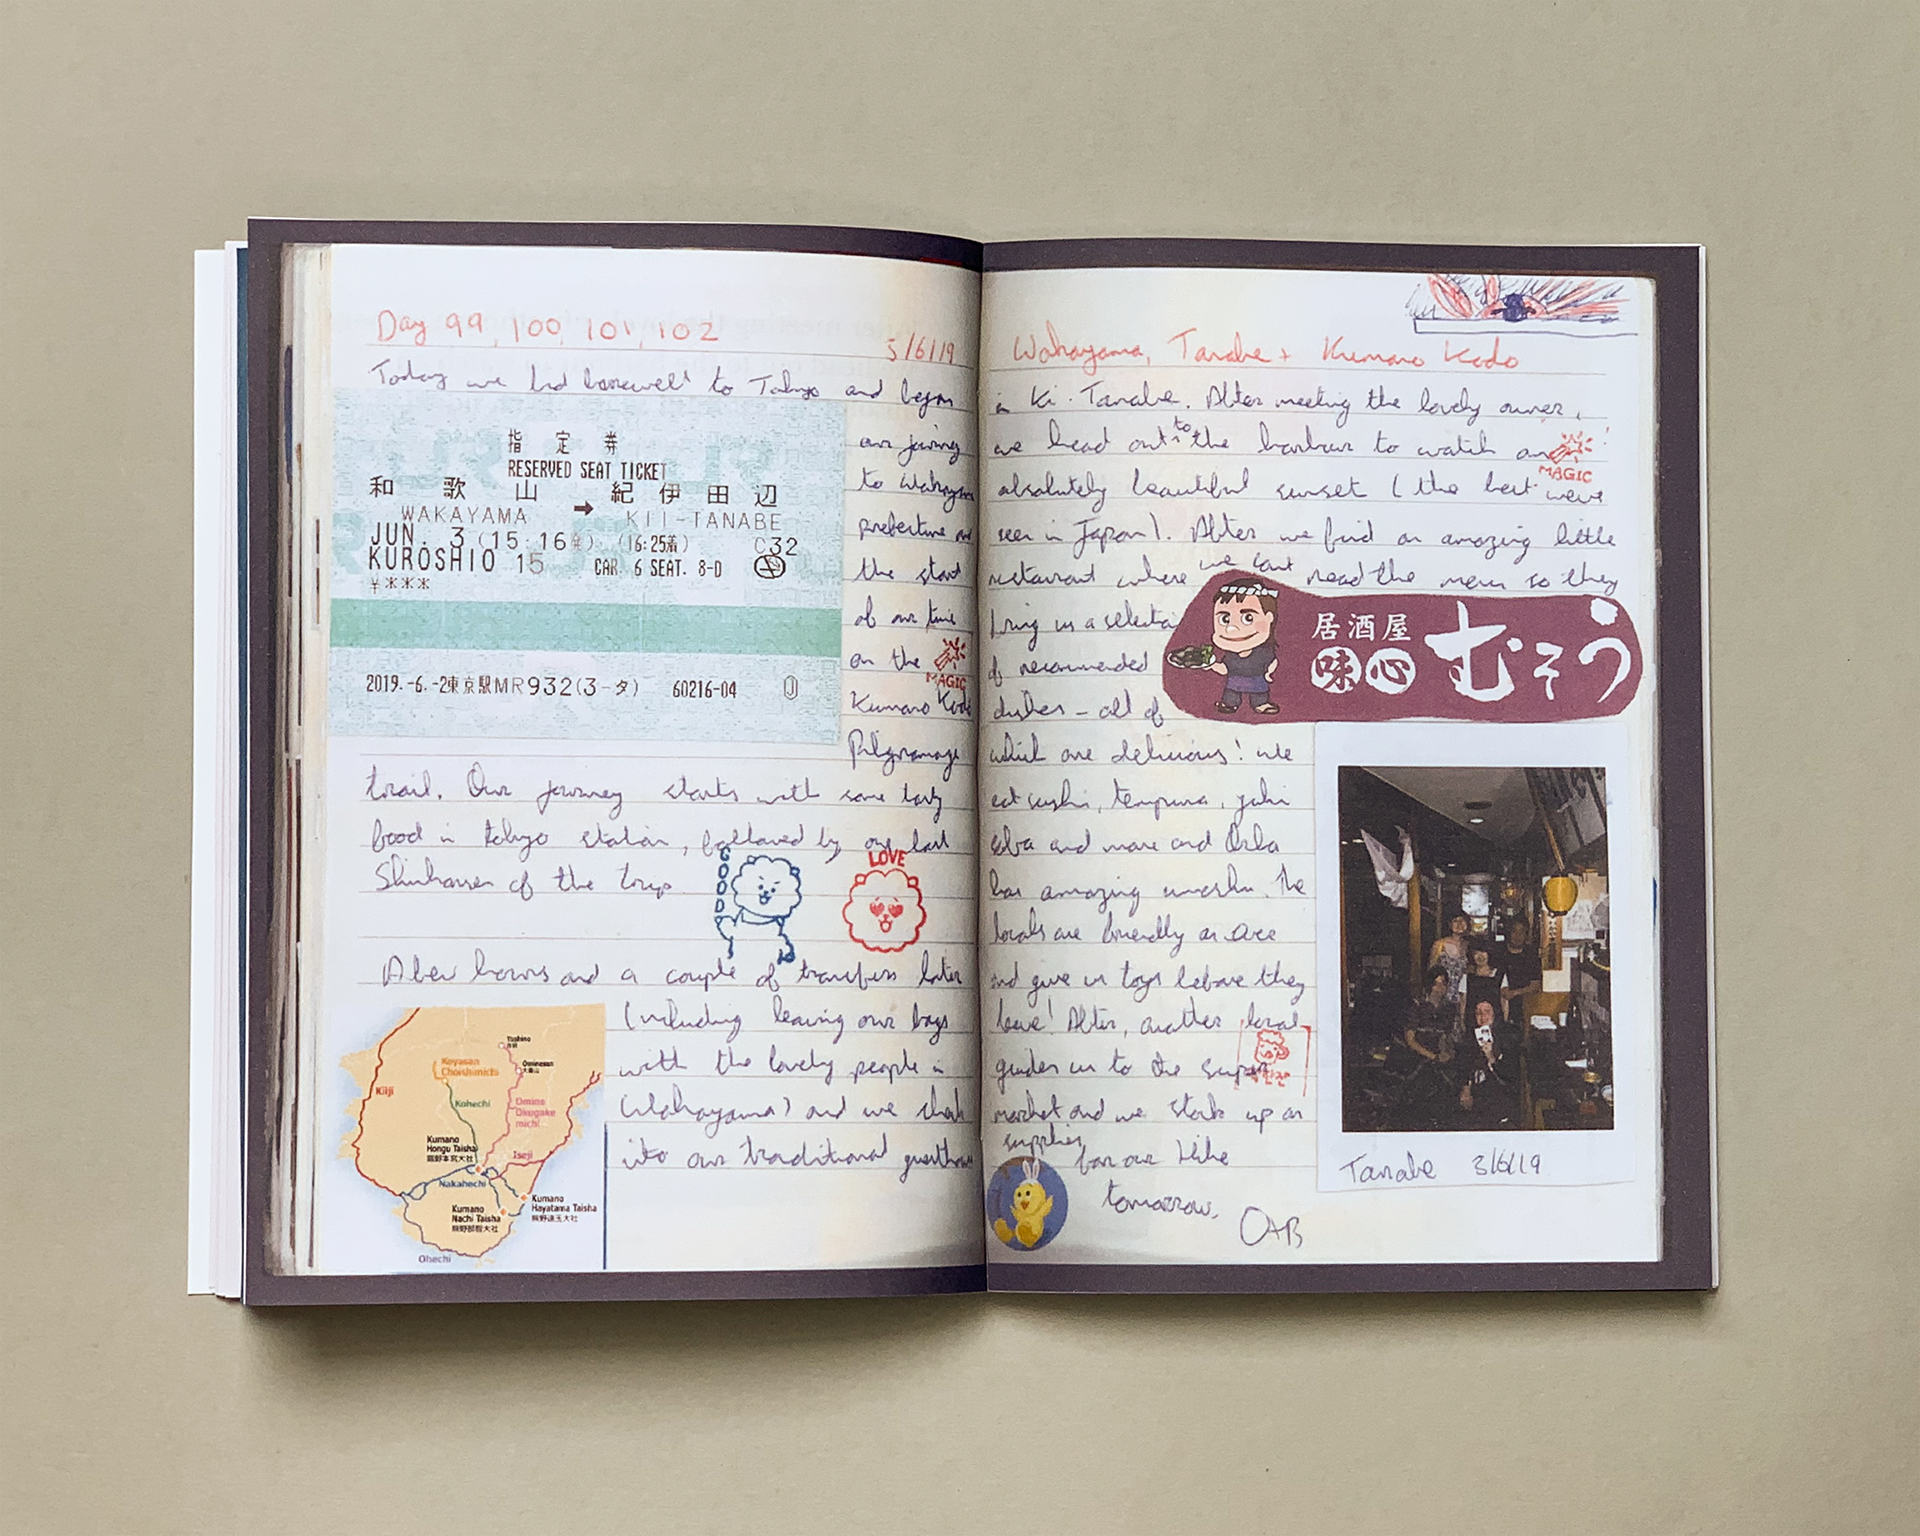 Day 99, 100, 101, 102
5/6/19
Today we bid farewell to Tokyo and begin
指定券
RESERVED SEAT TICKET
和歌山 → 紀伊田辺
WAKAYAMA KII-TANABE
JUN. 3 (15:16発) (16:25着) C32
KUROSHIO 15 CAR. 6 SEAT. 8-D
¥***
2019.-6.-2東京駅MR932(3-タ) 60216-04
our
to Wakayama
prefecture and
the start
of our time
on the
MAGIC
Kumano Kodo
Pilgramage
trail. Our journey starts with some tasty
food in tokyo station, followed by our last
of the trip
GOOD
LOVE
hours and a couple of transfers later
(including leaving our bags
with the lovely people in
Wakayama) and we check
into our traditional guesthouse
Yoshino
吉野
Koyasan
Choishimichi
Ominesan
大峯山
Kiiji
Kohechi
Omine
Okugake
michi
Kumano
Hongu Taisha
熊野本宮大社
Iseji
Nakahechi
Kumano
Hayatama Taisha
熊野速玉大社
Kumano
Nachi Taisha
熊野那智大社
Ohechi
Wakayama, Tanabe + Kumano Kodo
in Ki-Tanabe. After meeting the lovely owner,
we head out to the harbour to watch an
MAGIC
absolutely beautiful sunset (the best weve
seen in Japan). After we find an amazing little
restaurant where we cant read the menu so they
bring us a selection
of recommended
dishes - all of
居酒屋
味心 むそう
which are delicious! We
eat sushi, tempura, yaki
soba and more and
has amazing umeshu. The
locals are friendly as are
and give us toys before they
leave! After, another local
guides us to the super
market and we stock up on
supplies
for our hike
tomorrow.
OAB
Tanabe 3/6/19